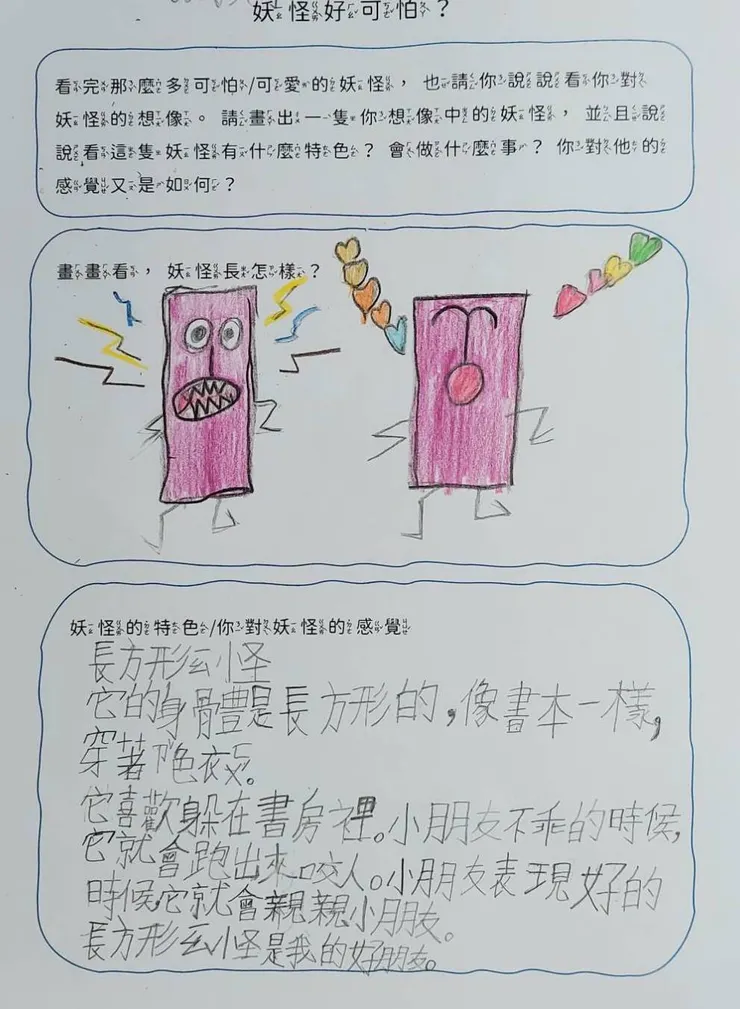 妖怪好可怕？
看完那麼多可怕/可愛的妖怪，也請你說說看你對
妖怪的想像。請畫出一隻你想像中的妖怪，並且說
說看這隻妖怪有什麼特色？會做什麼事？你對他的
感覺又是如何？
畫畫看，妖怪長怎樣？
妖怪的特色/你對妖怪的感覺
長方形ㄠ小怪
它的身體是長方形的，像書本一樣，
穿著色衣ㄈㄨ。
它喜歡躲在書房裡。小朋友不乖的時候，
它就會跑出來咬人。小朋友表現好的
時候，它就會親親小朋友。
長方形ㄠ小怪是我的好朋友。